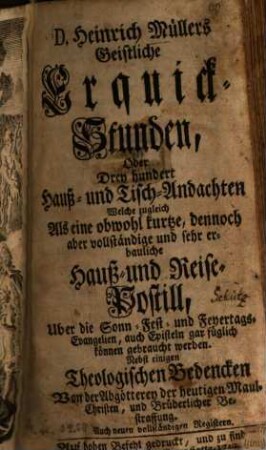 D. Heinrich Müllers
Geistliche
Erquick-
Stunden,
Oder
Drey hundert
Hauß- und Tisch-Andachten
Welche zugleich
Als eine obwohl kurtze, dennoch
aber vollständige und sehr er-
bauliche
Hauß- und Reise-
Postill,
Uber die Sonn- Fest- und Feyertags-
Evangelien, auch Episteln gar füglich
können gebraucht werden.
Nebst einigen
Theologischen Bedencken
Von der Abgötterey der heutigen Maul-
Christen, und Brüderlicher Be-
straffung.
Auch neuen vollständigen Registern.
Auf hohen Befehl gedruckt, und zu find